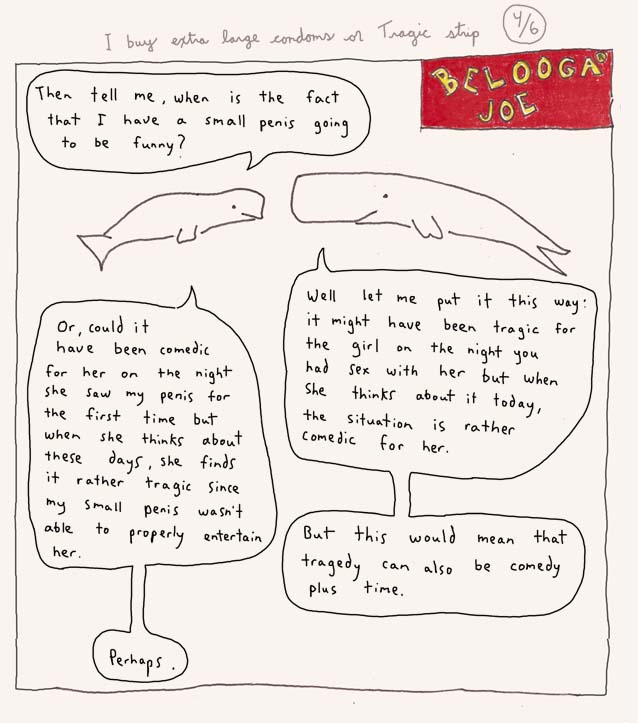 I buy extra large condoms or Tragic strip
4/6
BELOOGA
JOE
Then tell me, when is the fact
that I have a small penis going
to be funny?
Well let me put it this way:
it might have been tragic for
the girl on the night you
had sex with her but when
She thinks about it today,
the situation is rather
comedic for her.
Or, could it
have been comedic
for her on the night
she saw my penis for
the first time but
when she thinks about
these days, she finds
it rather tragic since
my small penis wasn't
able to properly entertain
her.
But this would mean that
tragedy can also be comedy
plus time.
Perhaps.